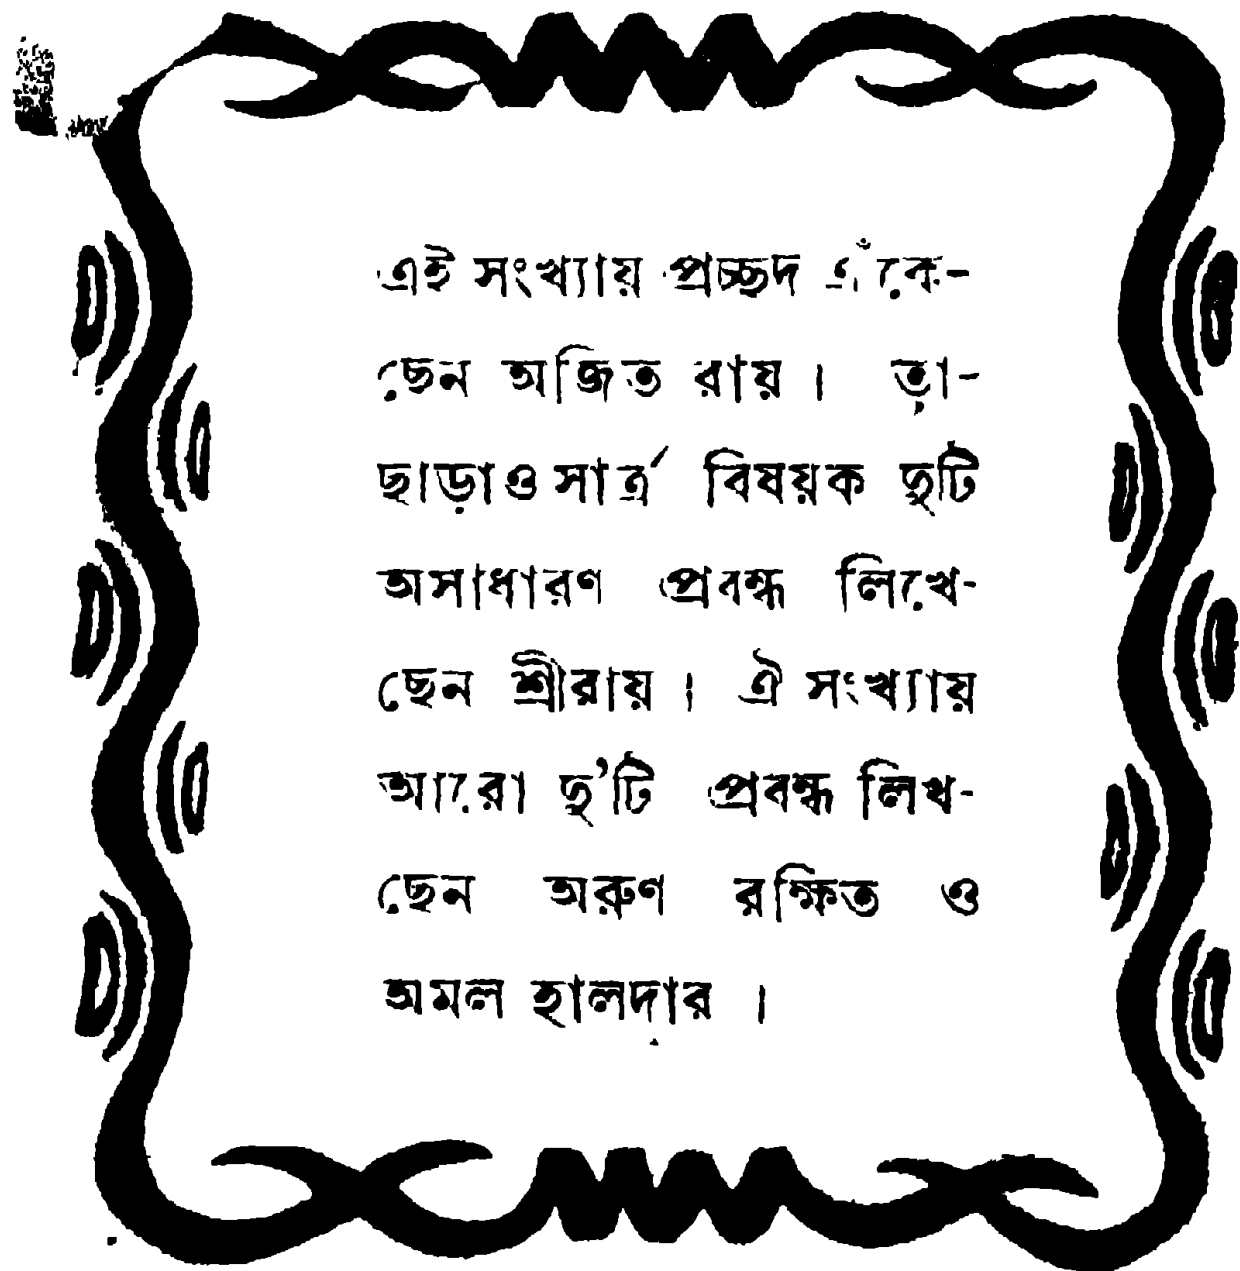 এই সংখ্যায় প্রচ্ছদ এঁকে-
ছেন অজিত রায় । তা-
ছাড়াও সার্ত্র বিষয়ক দুটি
অসাধারণ প্রবন্ধ লিখে-
ছেন শ্রীরায় । ঐ সংখ্যায়
আরো দু'টি প্রবন্ধ লিখ-
ছেন অরুণ রক্ষিত ও
অমল হালদার ।